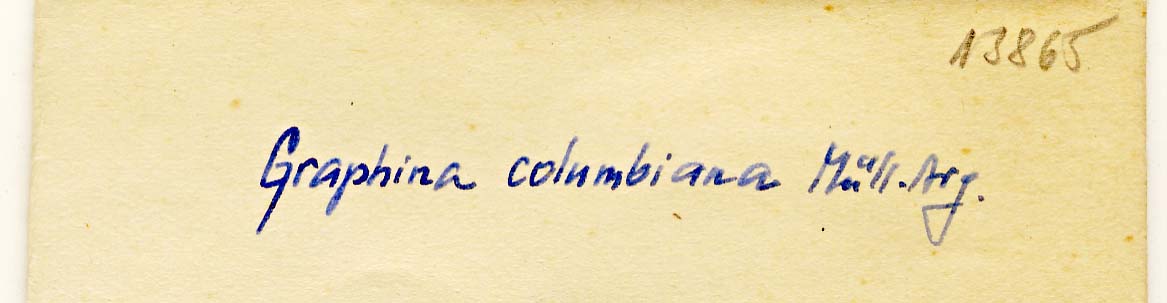 13865
Graphina columbiana Müll-Arg.